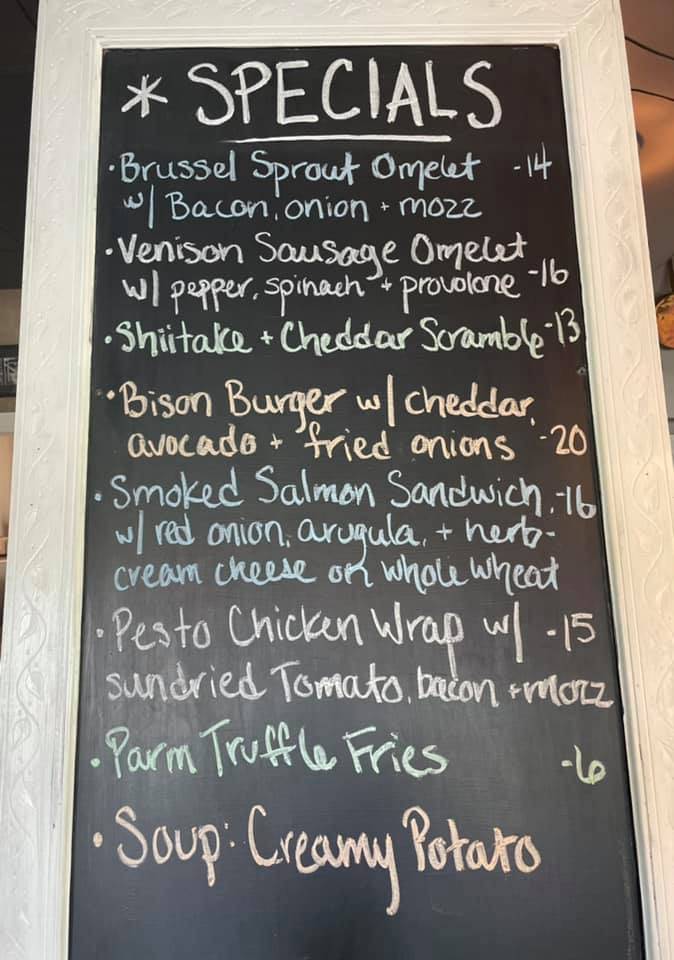 * SPECIALS
· Brussel Sprout Omelet -14
w/ Bacon, onion + mozz
· Venison Sausage Omelet
w/ pepper, spinach + provolone -16
· Shiitake + Cheddar Scramble -13
· Bison Burger w/ cheddar,
avocado + fried onions -20
· Smoked Salmon Sandwich, -16
w/ red onion, arugula, + herb-
cream cheese on whole wheat
· Pesto Chicken Wrap w/ -15
sundried Tomato, bacon + mozz
· Parm Truffle Fries -6
· Soup: Creamy Potato